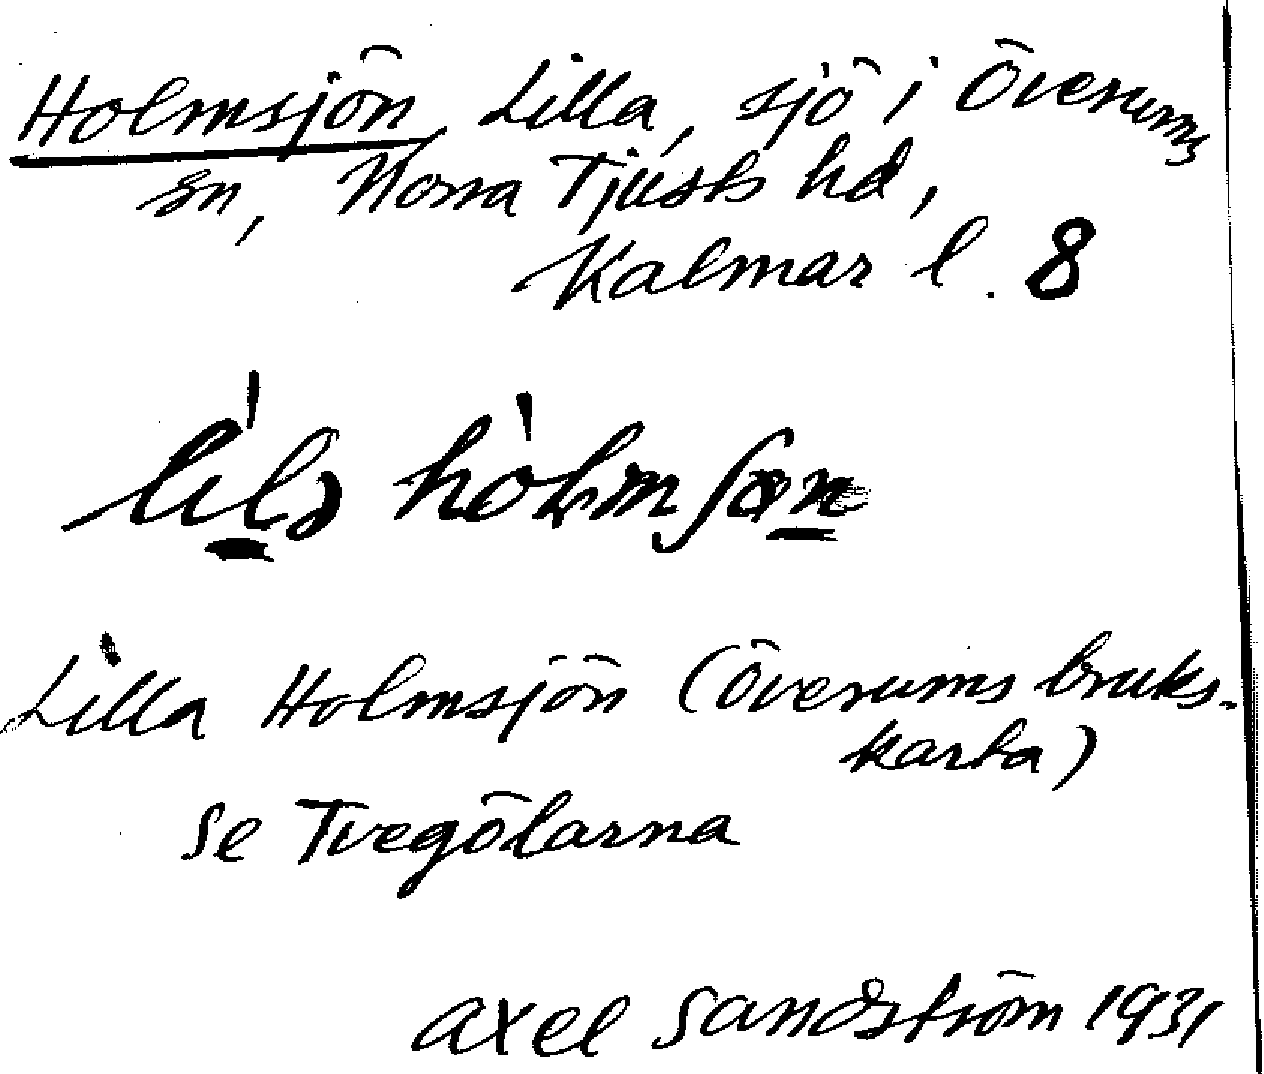 Holmsjön, Lilla, sjö i Överums
sn, Norra Tjusts hd,
Kalmar l. 8
Lilla Holmsjön (Överums bruks-
karta)
Se Tvegölarna
Axel Sandström 1931